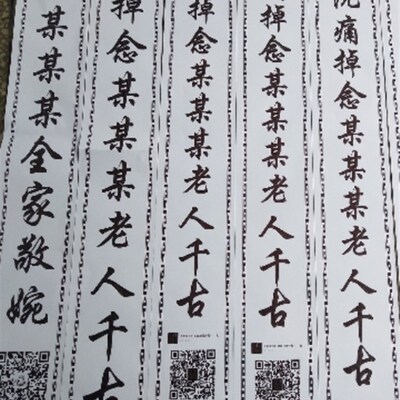 沉痛掉念某某某老人千古
掉念某某某老人千古
掉念某某某老人千古
掉念某某某老人千古
某某某全家敬婉